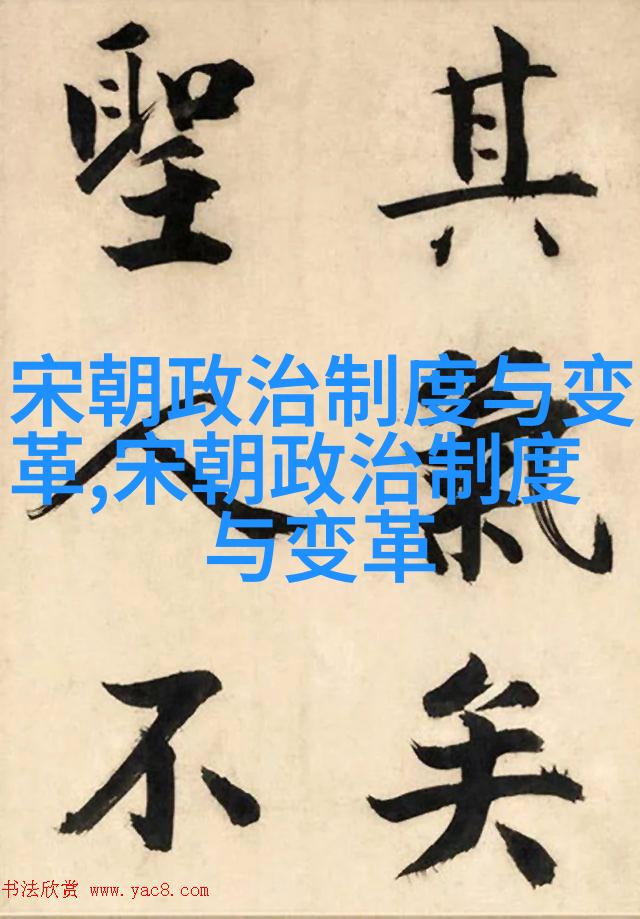 其氣矣
聖人不
宋朝政治制度与变
革,宋朝政治制度
与变革
书法欣赏 www.yac8.com